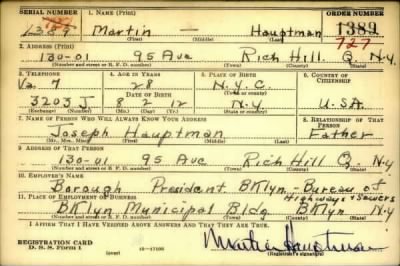 SERIAL NUMBER 1. NAME (Print) ORDER NUMBER
Martin — Hauptman 1389
(First) (Middle) (Last) 727
2. ADDRESS (Print)
130-01 95 Ave Rich Hill Q N.Y.
(Number and street or R. F. D. number) (Town) (County) (State)
3. TELEPHONE 4. AGE IN YEARS 5. PLACE OF BIRTH 6. COUNTRY OF CITIZENSHIP
Va. 7 28 N.Y.C.
DATE OF BIRTH (Town or county)
3203 J 8 2 12 N.Y. U.S.A.
(Exchange) (Number) (Mo.) (Day) (Yr.) (State or country)
7. NAME OF PERSON WHO WILL ALWAYS KNOW YOUR ADDRESS 8. RELATIONSHIP OF THAT PERSON
Joseph Hauptman Father
(Mr., Mrs., Miss) (First) (Middle) (Last)
9. ADDRESS OF THAT PERSON
130-01 95 Ave Rich Hill Q. N.Y.
(Number and street or R. F. D. number) (Town) (County) (State)
10. EMPLOYER'S NAME
Borough President BKlyn.-Bureau of
11. PLACE OF EMPLOYMENT OR BUSINESS Highways & Sewers
BKlyn Municipal Bldg. BKlyn N.Y.
(Number and street or R. F. D. number) (Town) (County) (State)
I AFFIRM THAT I HAVE VERIFIED ABOVE ANSWERS AND THAT THEY ARE TRUE.
REGISTRATION CARD
D. S. S. Form 1 Martin Hauptman